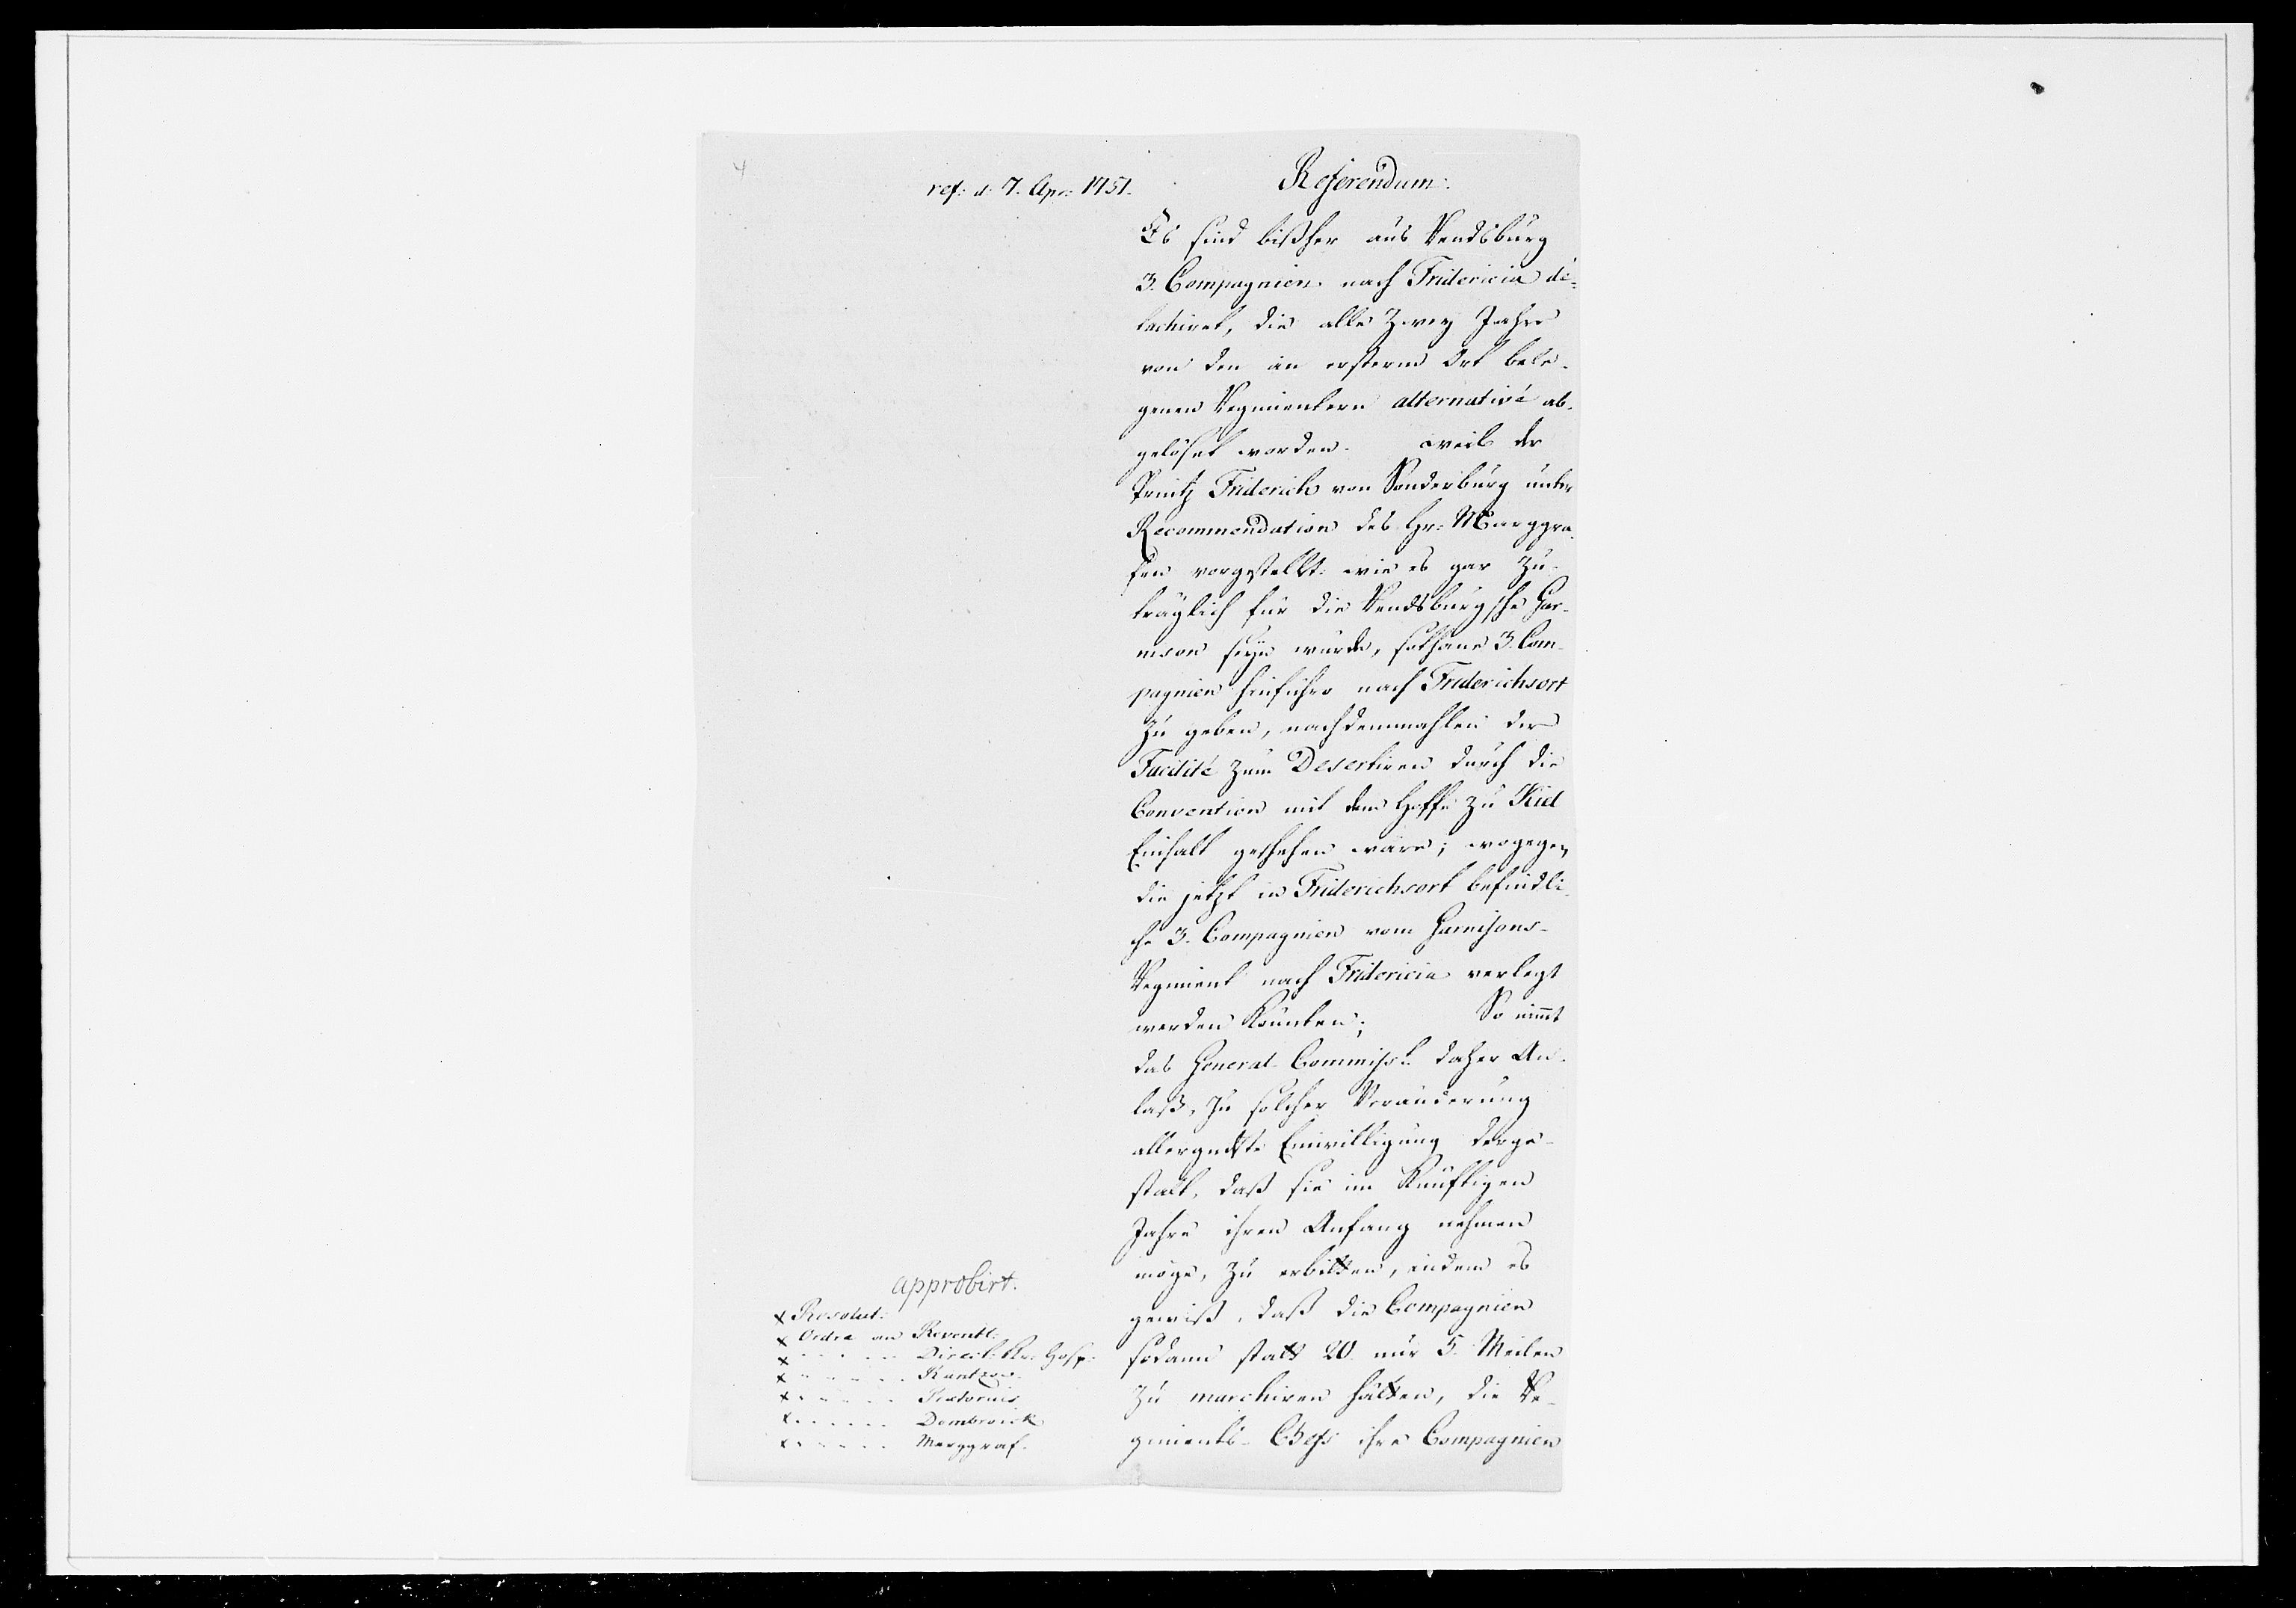 4
ref: d: 7. Apr: 1751.
Referendum.
Es sind bißher aus Rendsburg
3. Compagnien nach Fridericia dé-
tachiret, die alle zwey Jahre
von den an ersterm Ort bele-
genen Regimentern alternativé ab-
gelöset worden. weil der
Printz Friderich von Sonderburg unter
Recommendation des Hr: Marggra-
fen vorgestellt: wie es gar zu-
träglich für die Rendsburgsche Gar-
nison seyn würde, sothane 3. Com-
pagnien hinführo nach Friderichsort
zu geben, nachdemmahlen der
Facilité zum Desertiren durch die
Convention mit dem Hoffe zu Kiel
Einhalt geschehen wäre; wogegen
die jetzt in Friderichsort befindli-
che 3. Compagnien vom Garnisons-
Regiment nach Fridericia verlegt
werden könten; So nimmt
das General-Commiss: daher An-
laß, zu solcher Veränderung
allergndste Einwilligung derge-
stalt, daß sie im künftigen
Jahre ihren Anfang nehmen
möge, zu erbitten, indem es
gewiß, daß die Compagnien
sodann statt 20. nur 5. Meilen
zu marchiren hätten, die Re-
giments-Chefs ihre Compagnien
approbirt.
x Resolut:
x Ordre an Reventl:
x - - - - - Direct: Kr: Hosp:
x - - - - - Rantzow.
x - - - - - Pretorius
x - - - - - Dombroick
x - - - - - Marggraf.